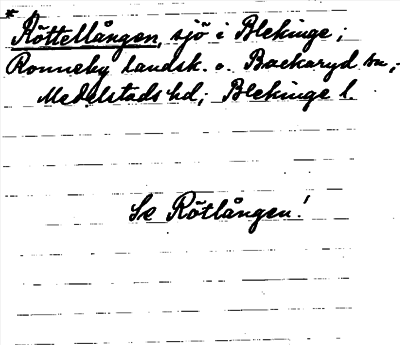 * Röttellången, sjö i Blekinge;
Ronneby landsk. o. Backaryd sn,
Medelstads hd; Blekinge l.
Se Rötlången!